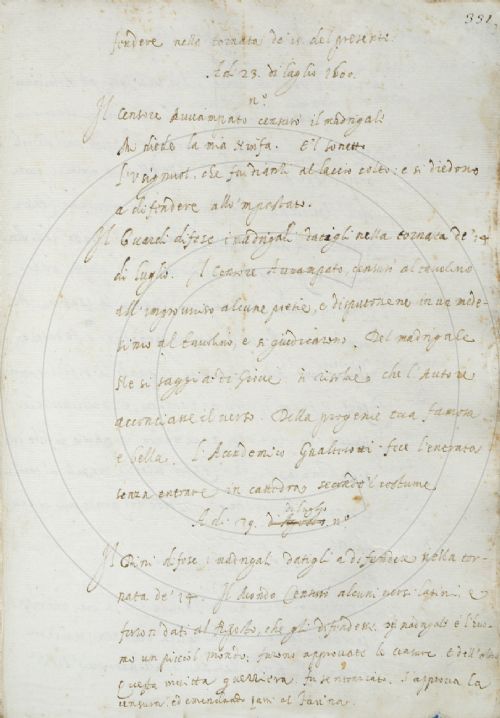 331.
fendere nella tornata de' 15. del presente.
Adì 23. di luglio 1600.
n.º
Il Censore Avvampato censurò il madrigale
Mi diede la mia Ninfa. E'l sonetto
che fu di anzi al laccio colto: e si diedono
a difendere all'Impastato.
Il Guardi difese i madrigali datigli nella tornata de' 14
di luglio. Il Censore Avvampato, censurò al tavolino
all'improvviso alcune poesie, e disputonene in un mede-
simo al tavolino, e si giudicarono. Del madrigale
Se si saggia di Giove si risolvé che l'Autore
acconciasse il verso. Della progenie tua famosa
e bella. L'Accademico Gualterotti fece l'entrata
senza entrare in cattedra secondo'l costume
Adì 29. di luglio n.º
Il Dini difese i madrigali datigli a difendere nella tor-
nata de' 14. Il Mondo Censurò alcuni versi latini e
furon dati al che gli difendesse madrigale è l'huo-
mo un piccol mondo: furono approvate le censure e dell'altro
Questa invitta guerriera fu sentenziato. S'approva la
censura, ed emendando